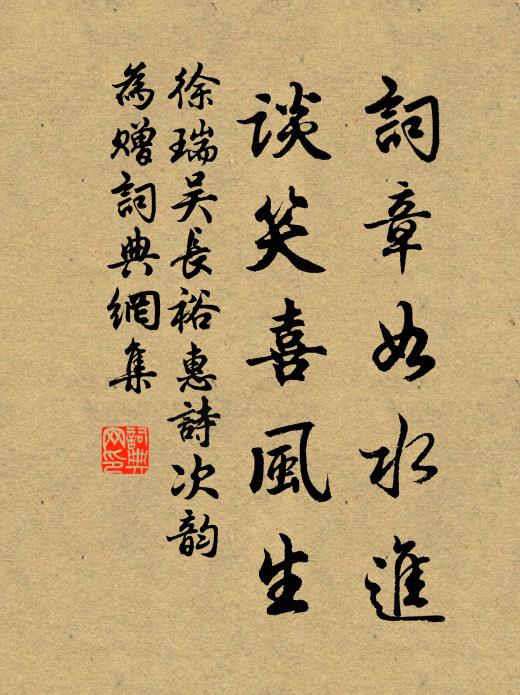 詞章如水進
談笑喜風生
徐瑞吴長裕惠詩次韵
為贈詞典網集
詞典網印